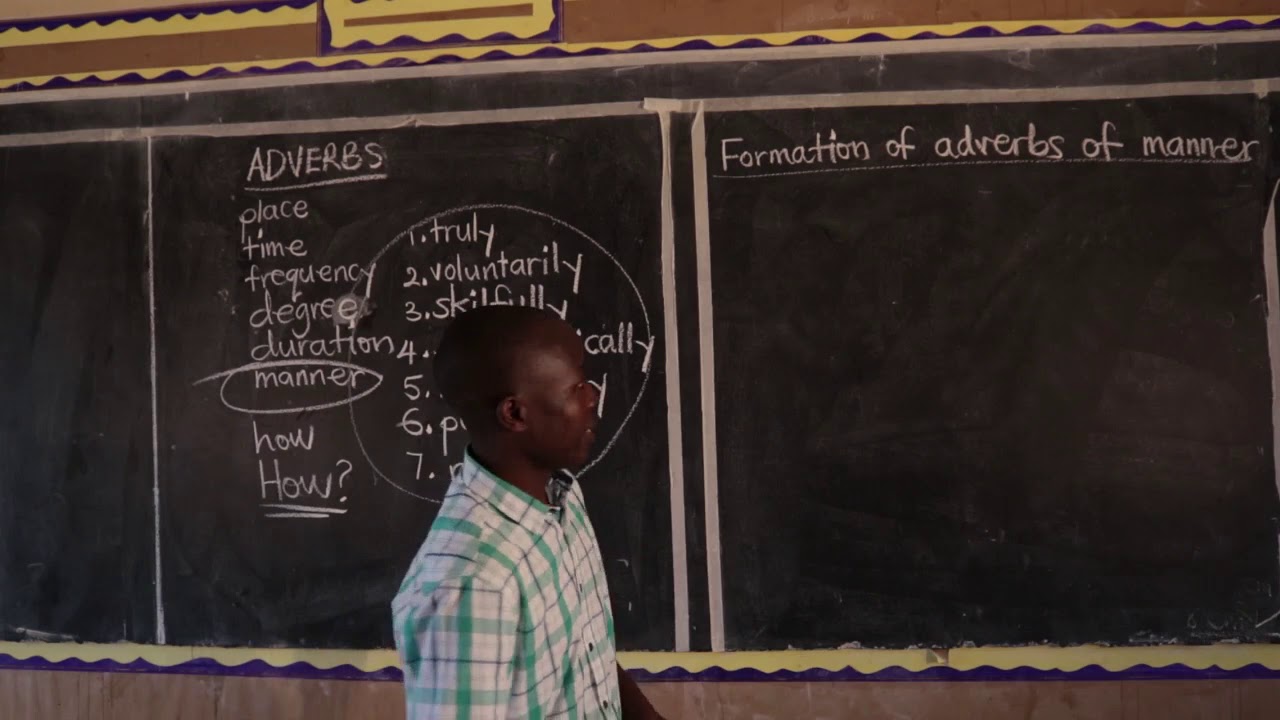 ADVERBS
place
time
frequency
degree
duration
manner
how
How?
1. truly
2. voluntarily
3. skilfully
4.
5.
6.
7.
Formation of adverbs of manner